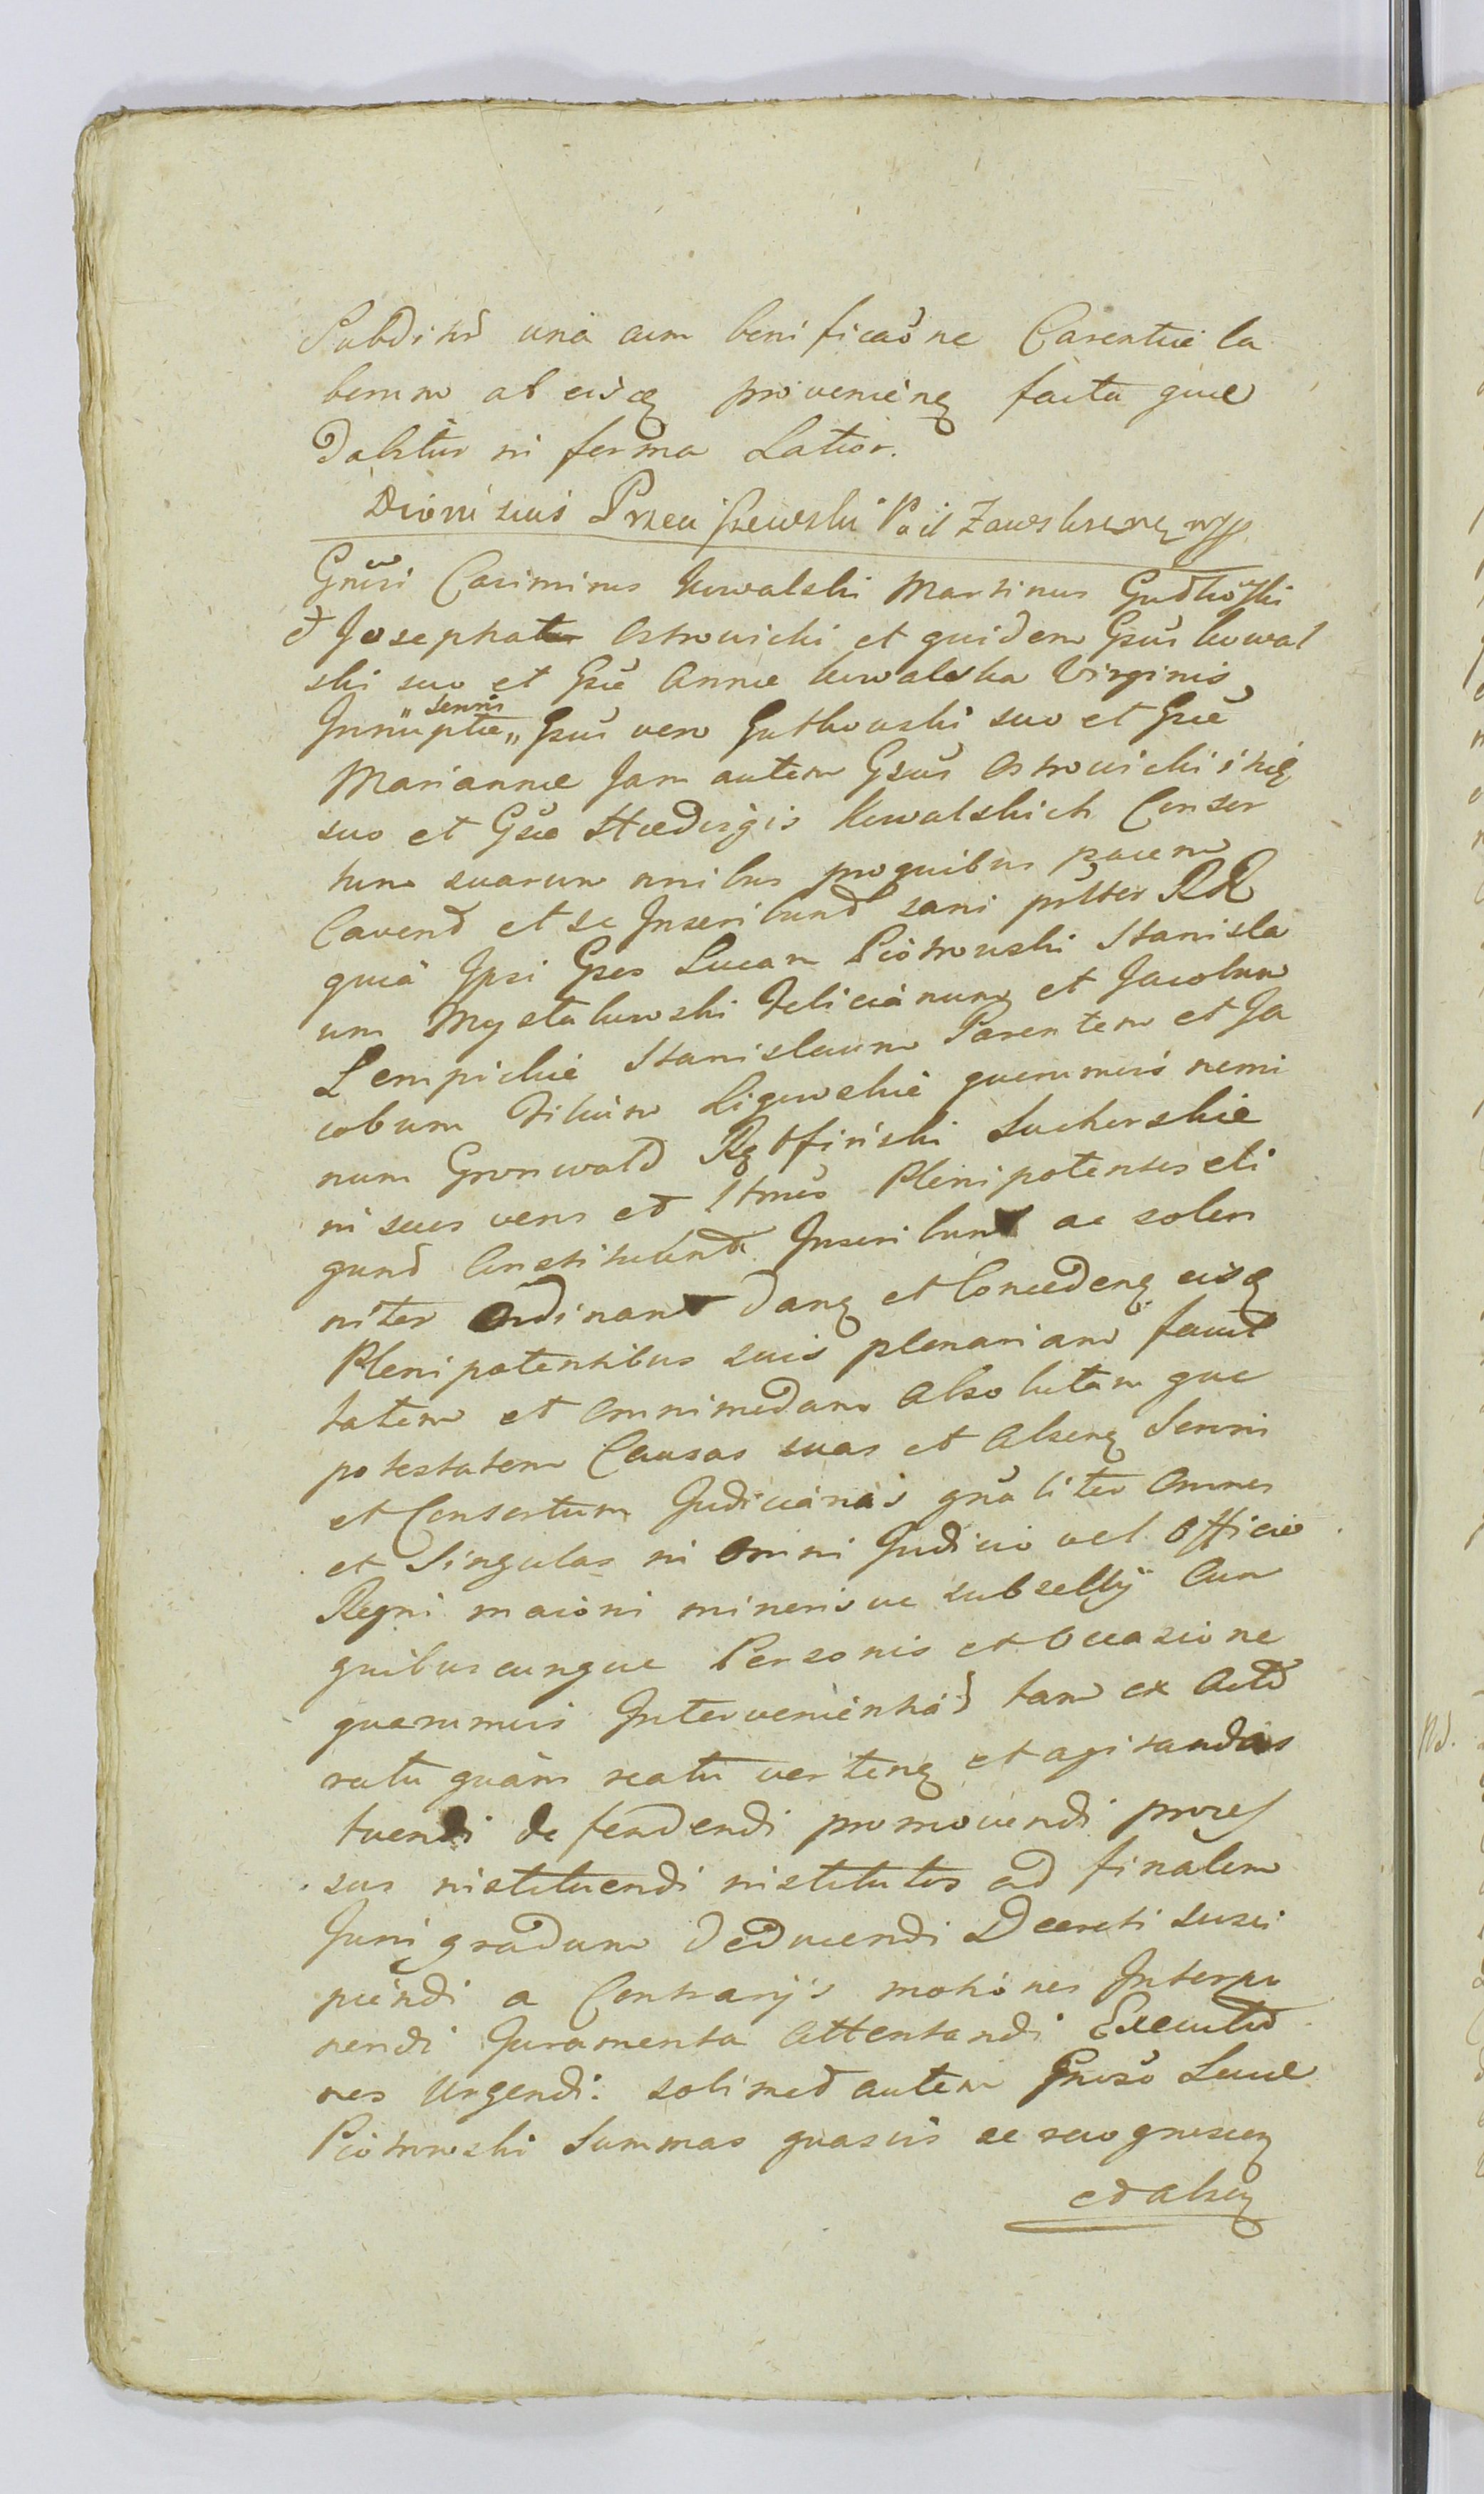 Subditis unà cum bonificaõne Carentiæ la
borum ab eisdq provenienq facta quæ
dabitur in forma Latior.
Dionisius Przeciszewski
Gnusi Casimirus Kowalski Martinus Gudkowski
et Josephater Ostrowicki et quidem Gsus Kowal
ski suo et Gsæ Annæ Kowalska Virginis
Innuptæ „ Sororis „ Gsus vero Gutkowski suo et Gsæ
Mariannæ Jam autem Gsus Ostrowicki itidq
suo et Gsæ Hædvigis Kowalskich Consor
tum suarum nnibus pro quibus pacem
Cavend et se Inscribund sani pñtter RR
quià Ipsi Gses Lucam Piotrowski Stanisla
um Mystkowski Felicianum et Jacobum
Lempickie Stanislaum Parentem et Ja
cobum Filium Ligowskie quemvis nemi
num Gronwald Suchorskie
ni suos veros et ltmos Plenipotentes eli
gund Constituund Inscribunt ac solen
niter Ordinant danq et Concedenq eisdq
Plenipotentibus suis plenariam facul
tatem et Omnimodam Absolutam que
potestatem Causas suas et Absenq Sororis
et Consortum Judiciarias gnaliter Omnes
et Singulas in Omni Judicio vel Officio
Regni maiori minorisve subsellij Cum
quibuscunque Personis et Occasione
quarumvis Intervenientias tam ex Acto
ratu quàm reatu vertenq et agitandas
tuendi defendendi promovendi proces
sus instituendi institutos ad finalem
Juris gradum deducendi Decreti susci
piendi a Contrarijs motiones Interpo
nendi Juramenta Attentandi Executio
nes Urgendi: solimet autem Gnuso Lucæ
Piotrowski Summas quasvis se recognoscenq
et Absenq